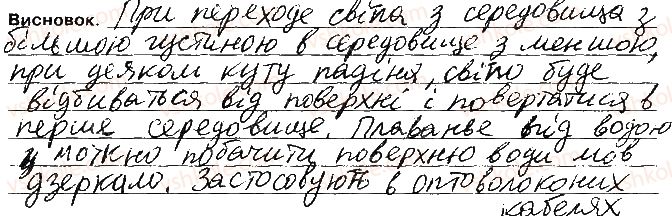 Висновок. При переходе світа з середовища з
більшою густиною в середовище з меншою,
при деяком куту падіня, світо буде
відбиваться від поверхні і повертатися в
перше середовище. Плаванье під водою
можно побачити поверхню води мов
дзеркало. Застосовують в оптоволоконих
кабелях